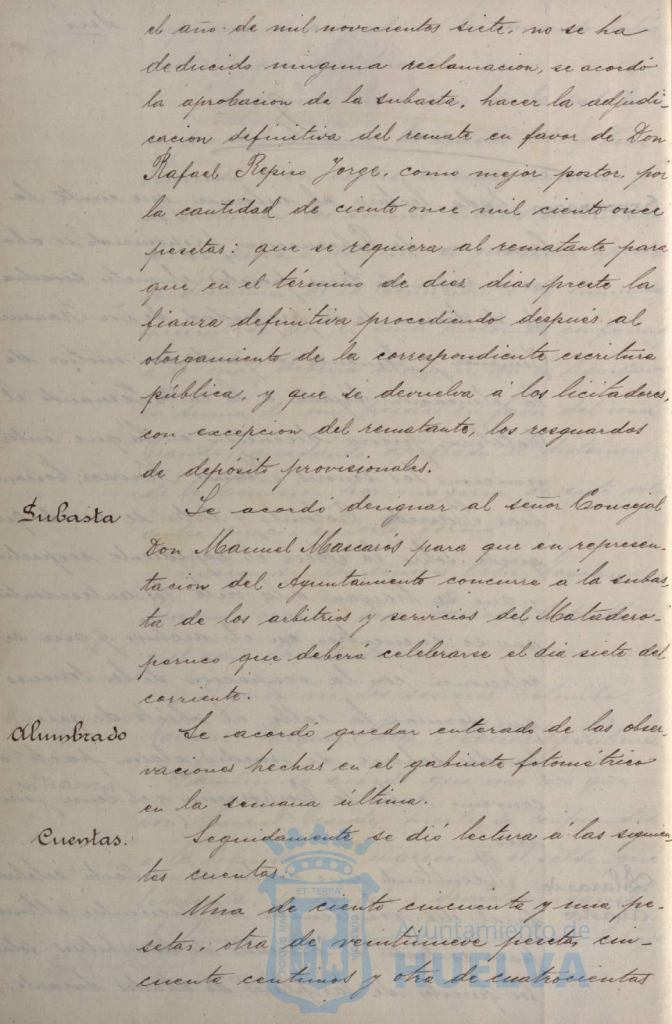 el año de mil novecientos siete, no se ha
deducido ninguna reclamacion, se acordó
la aprobacion de la subasta, hacer la adjudi-
cacion definitiva del remate en favor de Don
Rafael Repiso Jorge, como mejor postor, por
la cantidad de ciento once mil ciento once
pesetas: que se requiera al rematante para
que en el término de diez dias preste la
fianza definitiva procediendo después al
otorgamiento de la correspondiente escritura
pública, y que se devuelva á los licitadores,
con excepcion del rematante, los resguardos
de depósito provisionales.
Subasta Se acordó designar al señor Concejal
Don Manuel Mascarós para que en represen-
tacion del Ayuntamiento concurra á la subas-
ta de los arbitrios y servicios del Matadero-
peruco que deberá celebrarse el dia siete del
corriente.
Alumbrado Se acordó quedar enterado de las obser-
vaciones hechas en el gabinete fotométrico
en la semana última.
Cuentas. Seguidamente se dió lectura á las siguien-
tes cuentas.
Una de ciento cincuenta y una pe-
setas; otra de veintinueve pesetas cin-
cuenta centimos y otra de cuatrocientas
Ayuntamiento de
HUELVA